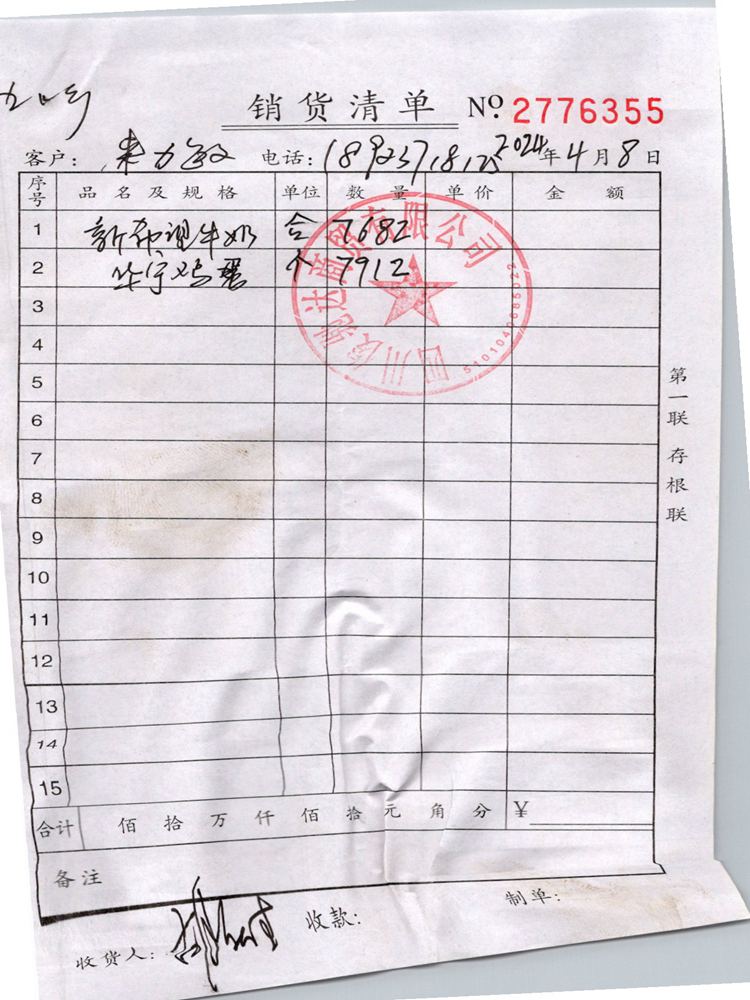 销货清单 No. 2776355
客户: 电话: 2024年4月8日
序号 品名及规格 单位 数量 单价 金额
1 新希望牛奶 合 7682
2 华宇鸡蛋 个 7912
3
4
5
6
7
8
9
10
11
12
13
14
15
合计 佰拾万仟佰拾元角分 ¥
备注
收货人: 收款: 制单:
第一联 存根联
四川 达商贸有限公司